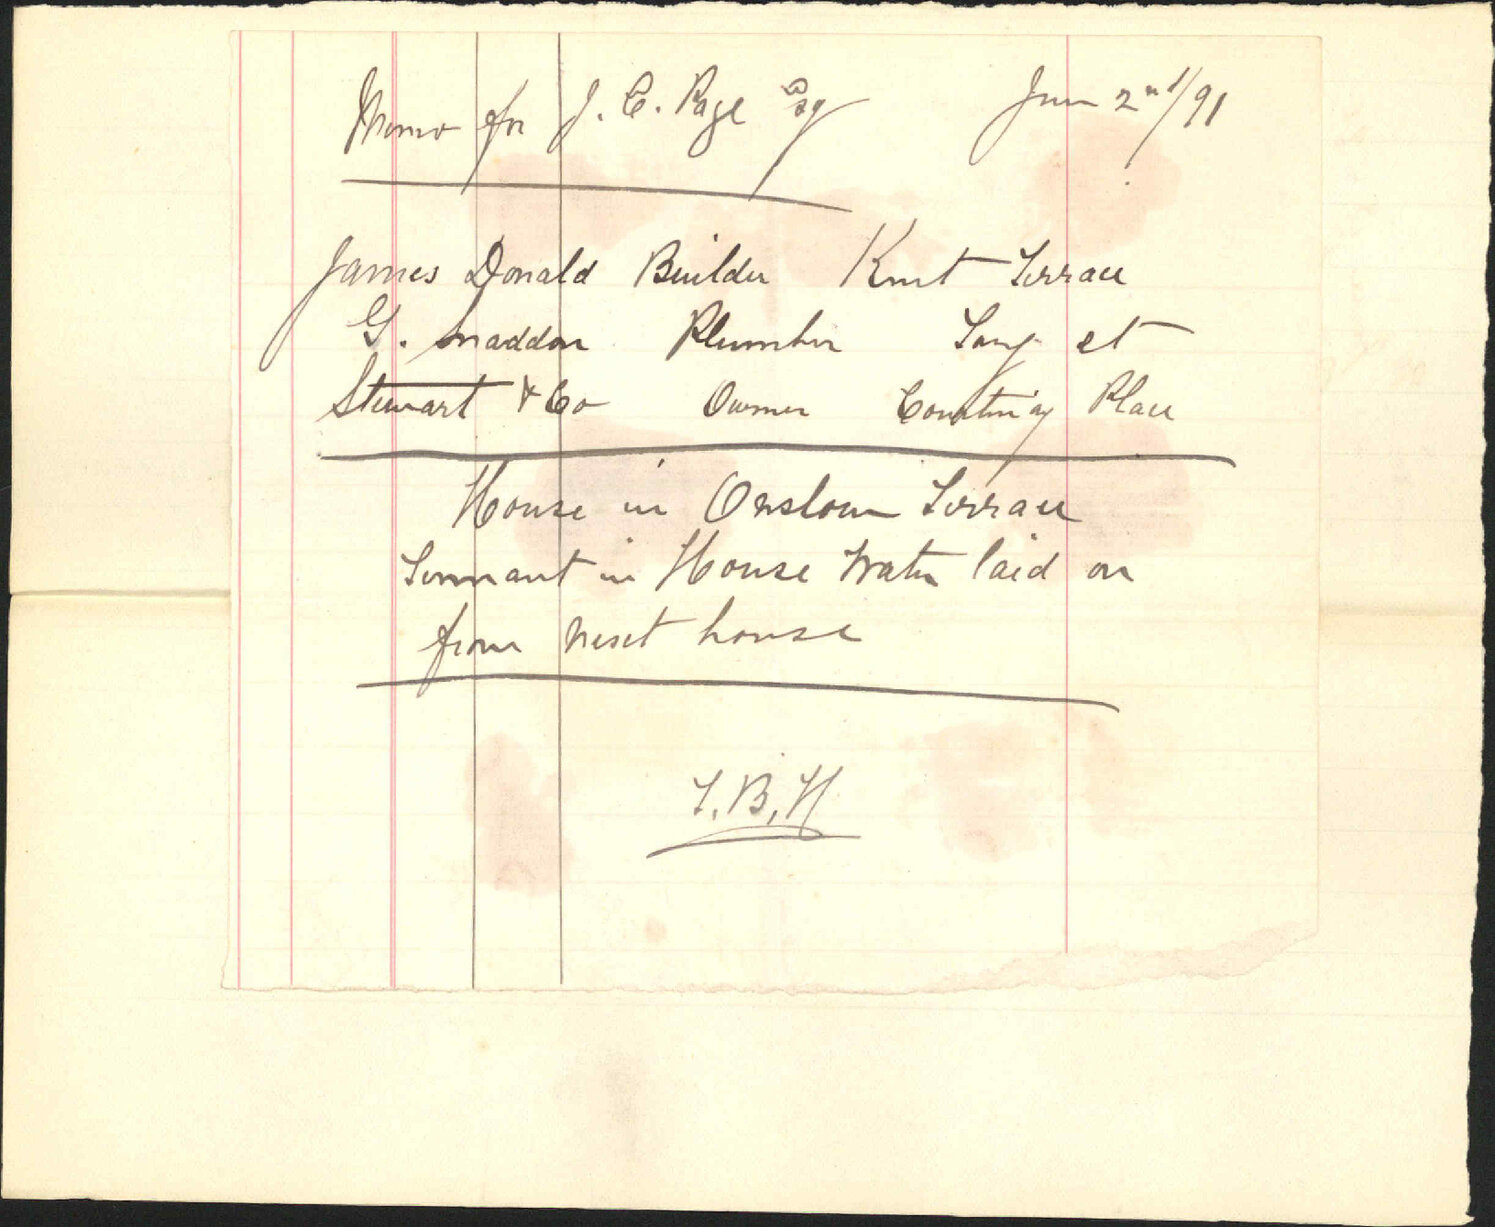 Memo for J. C. Page Esq June 2nd/91
James Donald Builder Kent Terrace
G. Maddon Plumber Tory st
Stewart & Co Owner Courtnay Place
House in Onslow Terrace
Tennant in House Water laid on
from next house
T.B.H